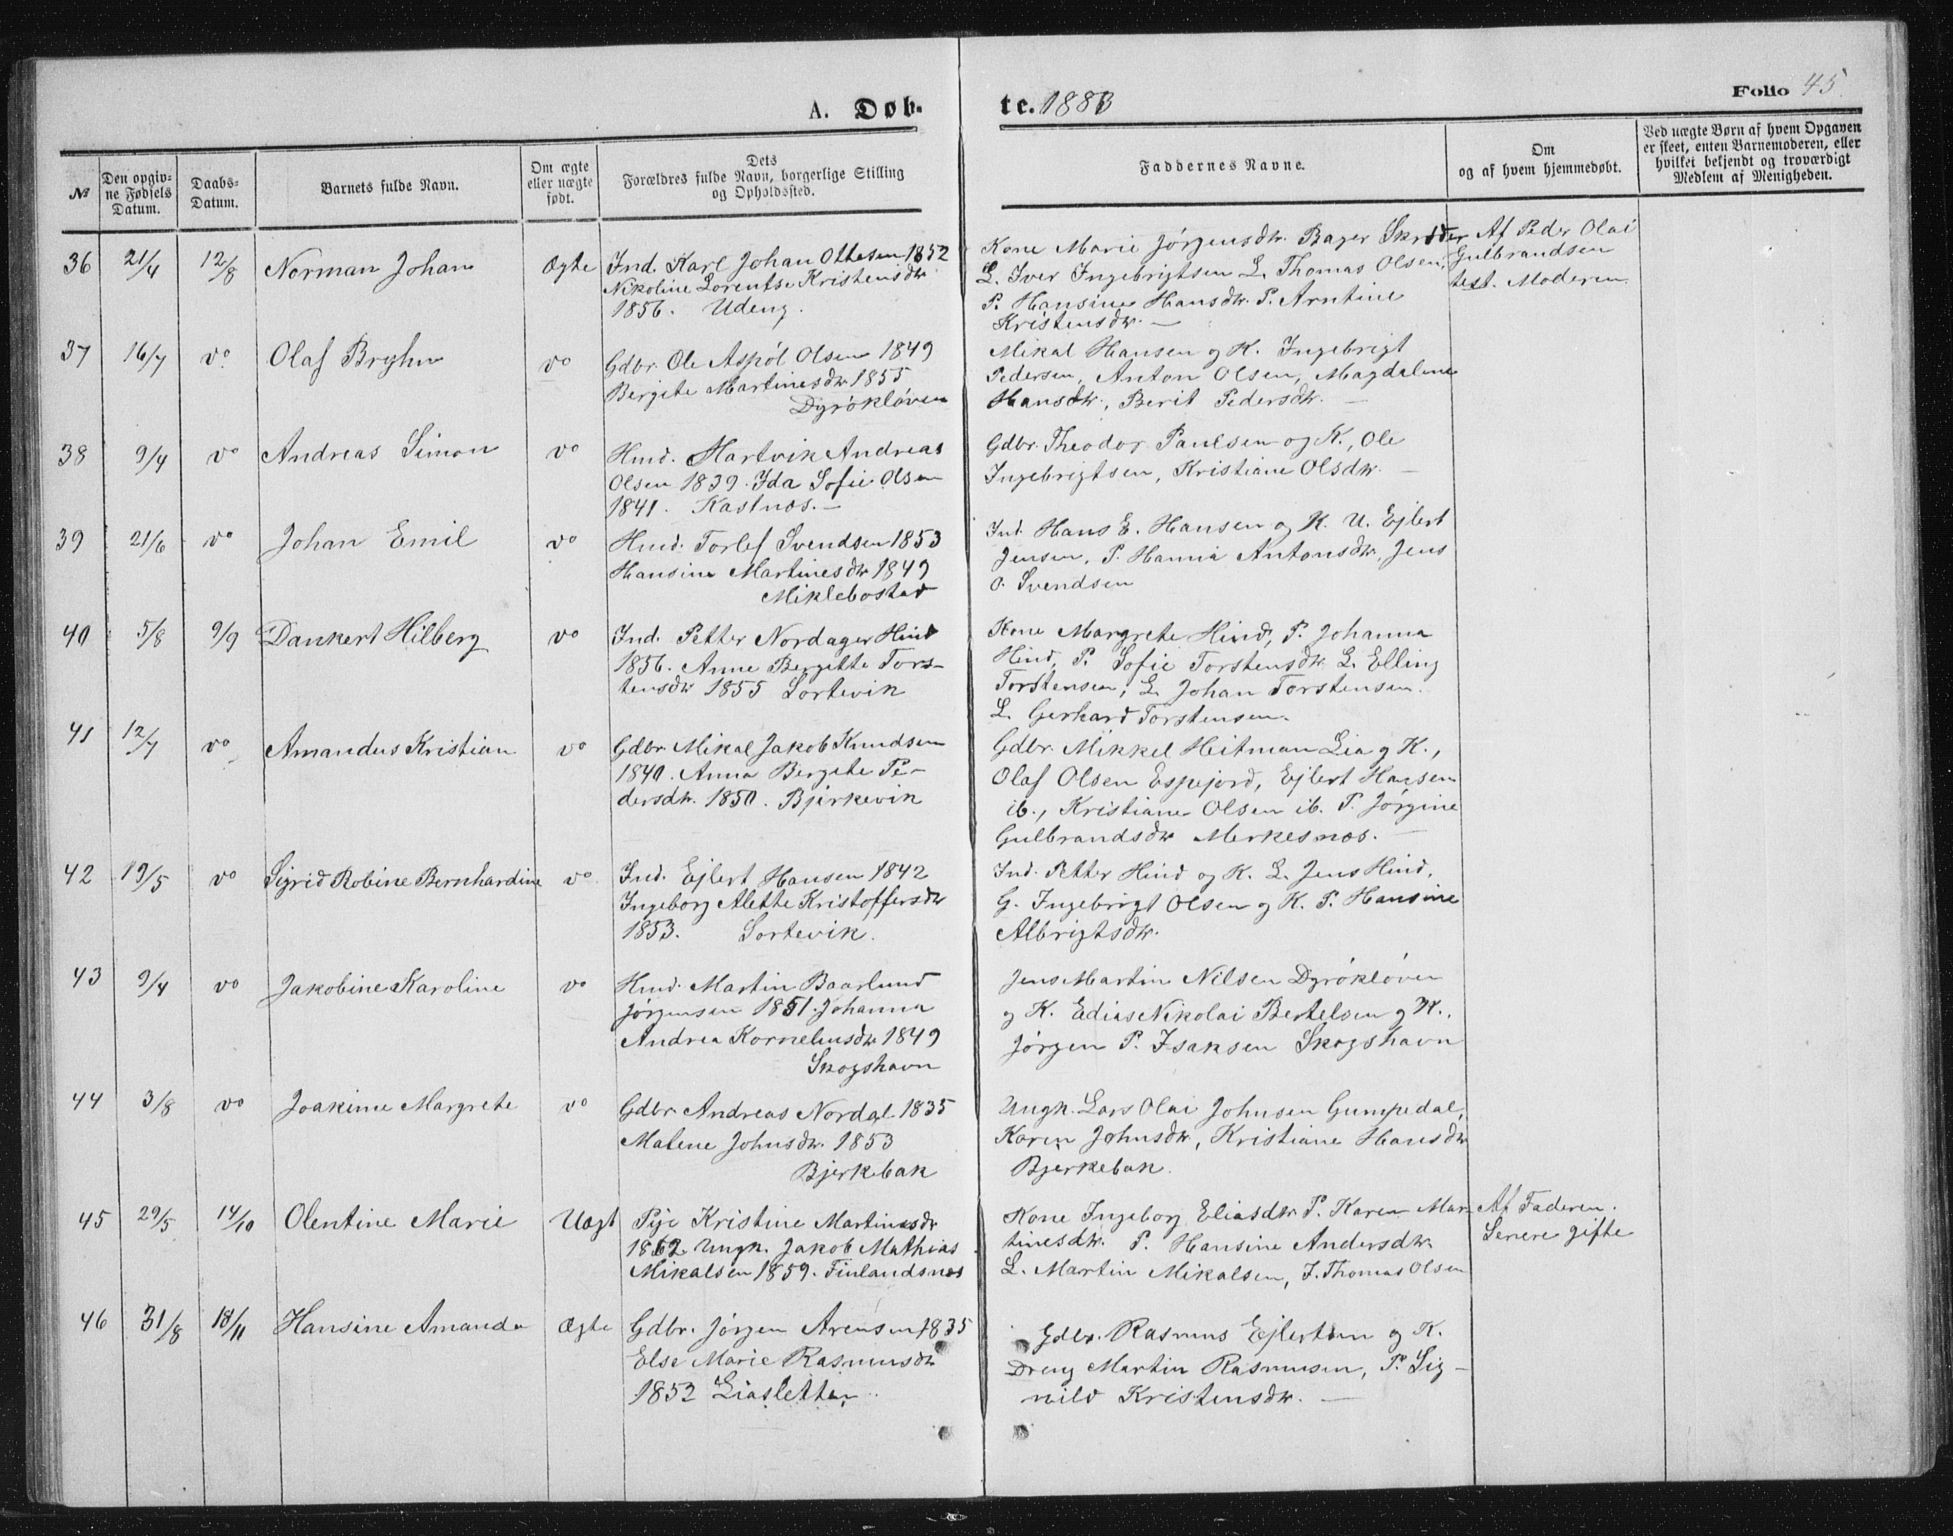 A. Døb-
te. 1883
Folio 45.
№
Den opgiv-
ne Fødsels
Datum.
Daabs-
Datum.
Barnets fulde Navn.
Om ægte
eller uægte
født.
Dets
Forældres fulde Navn, borgerlige Stilling
og Opholdssted.
Faddernes Navne.
Om
og af hvem hjemmedøbt.
Ved uægte Børn af hvem Opgaven
er skeet, enten Barnemoderen, eller
hvilket bekjendt og troværdigt
Medlem af Menigheden.
36 21/4 12/8 Norman Johan Ægte
Ind. Karl Johan Ottesen 1852
Nikoline Lorentse Kristensdtr
1856. Udeng.
Kone Marie Jørgensdtr. Bager Skrøder
L. Iver Ingebrigtsen L. Thomas Olsen,
P. Hansine Hansdtr. P. Arntine
Kristensdtr. —
Af Peder Olai
Gulbrandsen
test. Moderen
37 16/7 do Olaf Bryhn do
Gdbr. Ole Aspøl Olsen 1849
Bergite Martinesdtr 1855
Dyrøkløven
Mikal Hansen og K. Ingebrigt
Pedersen, Anton Olsen, Magdalene
Hansdtr, Berit Pedersdtr. —
38 9/4 do Andreas Simon do
Hmd. Hartvik Andreas
Olsen 1839. Ida Sofie Olsen
1841. Kastnæs. —
Gdbr. Theodor Paulsen og K., Ole
Ingebrigtsen, Kristiane Olsdtr. —
39 21/6 do Johan Emil do
Hmd. Torlef Svendsen 1853
Hansine Martinesdtr 1849
Miklebostad
Ind. Hans E. Hansen og K. U. Ejlert
Jensen, P. Hanna Antonsdtr, Jens
O. Svendsen
40 5/8 9/9 Dankert Hilberg do
Ind. Petter Nordager Hind
1856. Anne Bergitte Tors-
tensdtr 1855 Sortevik
Kone Margrete Hind, P. Johanna
Hind, P. Sofie Torstensdtr L. Elling
Torstensen, L. Johan Torstensen.
L. Gerhard Torstensen.
41 12/7 do Amandus Kristian do
Gdbr. Mikal Jakob Knudsen
1840. Anna Bergete Pe-
dersdtr. 1850. Bjerkevik
Gdbr. Mikkel Heitman Lia og K.,
Olaf Olsen Espejord, Ejlert Hansen
ib., Kristiane Olsen ib. P. Jørgine
Gulbrandsdtr Merkesnæs. —
42 19/5 do Sigrid Robine Bernhardine do
Ind. Ejlert Hansen 1842
Ingeborg Alette Kristoffersdtr
1853. Sortevik.
Ind. Petter Hind og K. L. Jens Hind,
G. Ingebrigt Olsen og K. P. Hansine
Albrigtsdtr.
43 9/4 do Jakobine Karoline do
Hmd. Martin Baarlund
Jørgensen 1851. Johanna
Andrea Korneliusdtr 1849
Skogshavn
Jens Martin Nilsen Dyrøkløven
og K. Edias Nikolai Bertelsen og K.,
Jørgen P. Isaksen Skogshavn
44 3/8 do Joakime Margrete do
Gdbr. Andreas Nordal 1835
Malene Johnsdtr. 1853
Bjerkebak
Ungk. Lars Olai Johnsen Gumpedal,
Karen Johnsdtr, Kristiane Hansdtr
Bjerkebak.
45 29/5 14/10 Olentine Marie Uægt
Pige Kristine Martinesdtr
1862 Ungk. Jakob Mathias
Mikalsen 1859. Finlandsnæs
Kone Ingeborg Eliasdtr P. Karen Mar-
tinesdtr. P. Hansine Andersdtr
L. Martin Mikalsen, J. Thomas Olsen
Af Faderen.
Senere gifte
46 31/8 18/11 Hansine Amanda Ægte
Gdbr. Jørgen Arensen 1835
Else Marie Rasmusdtr
1852 Liasletten.
Gdbr. Rasmus Ejlertsen og K.
Dreng Martin Rasmusen, P. Sig-
nild Kristensdtr. —